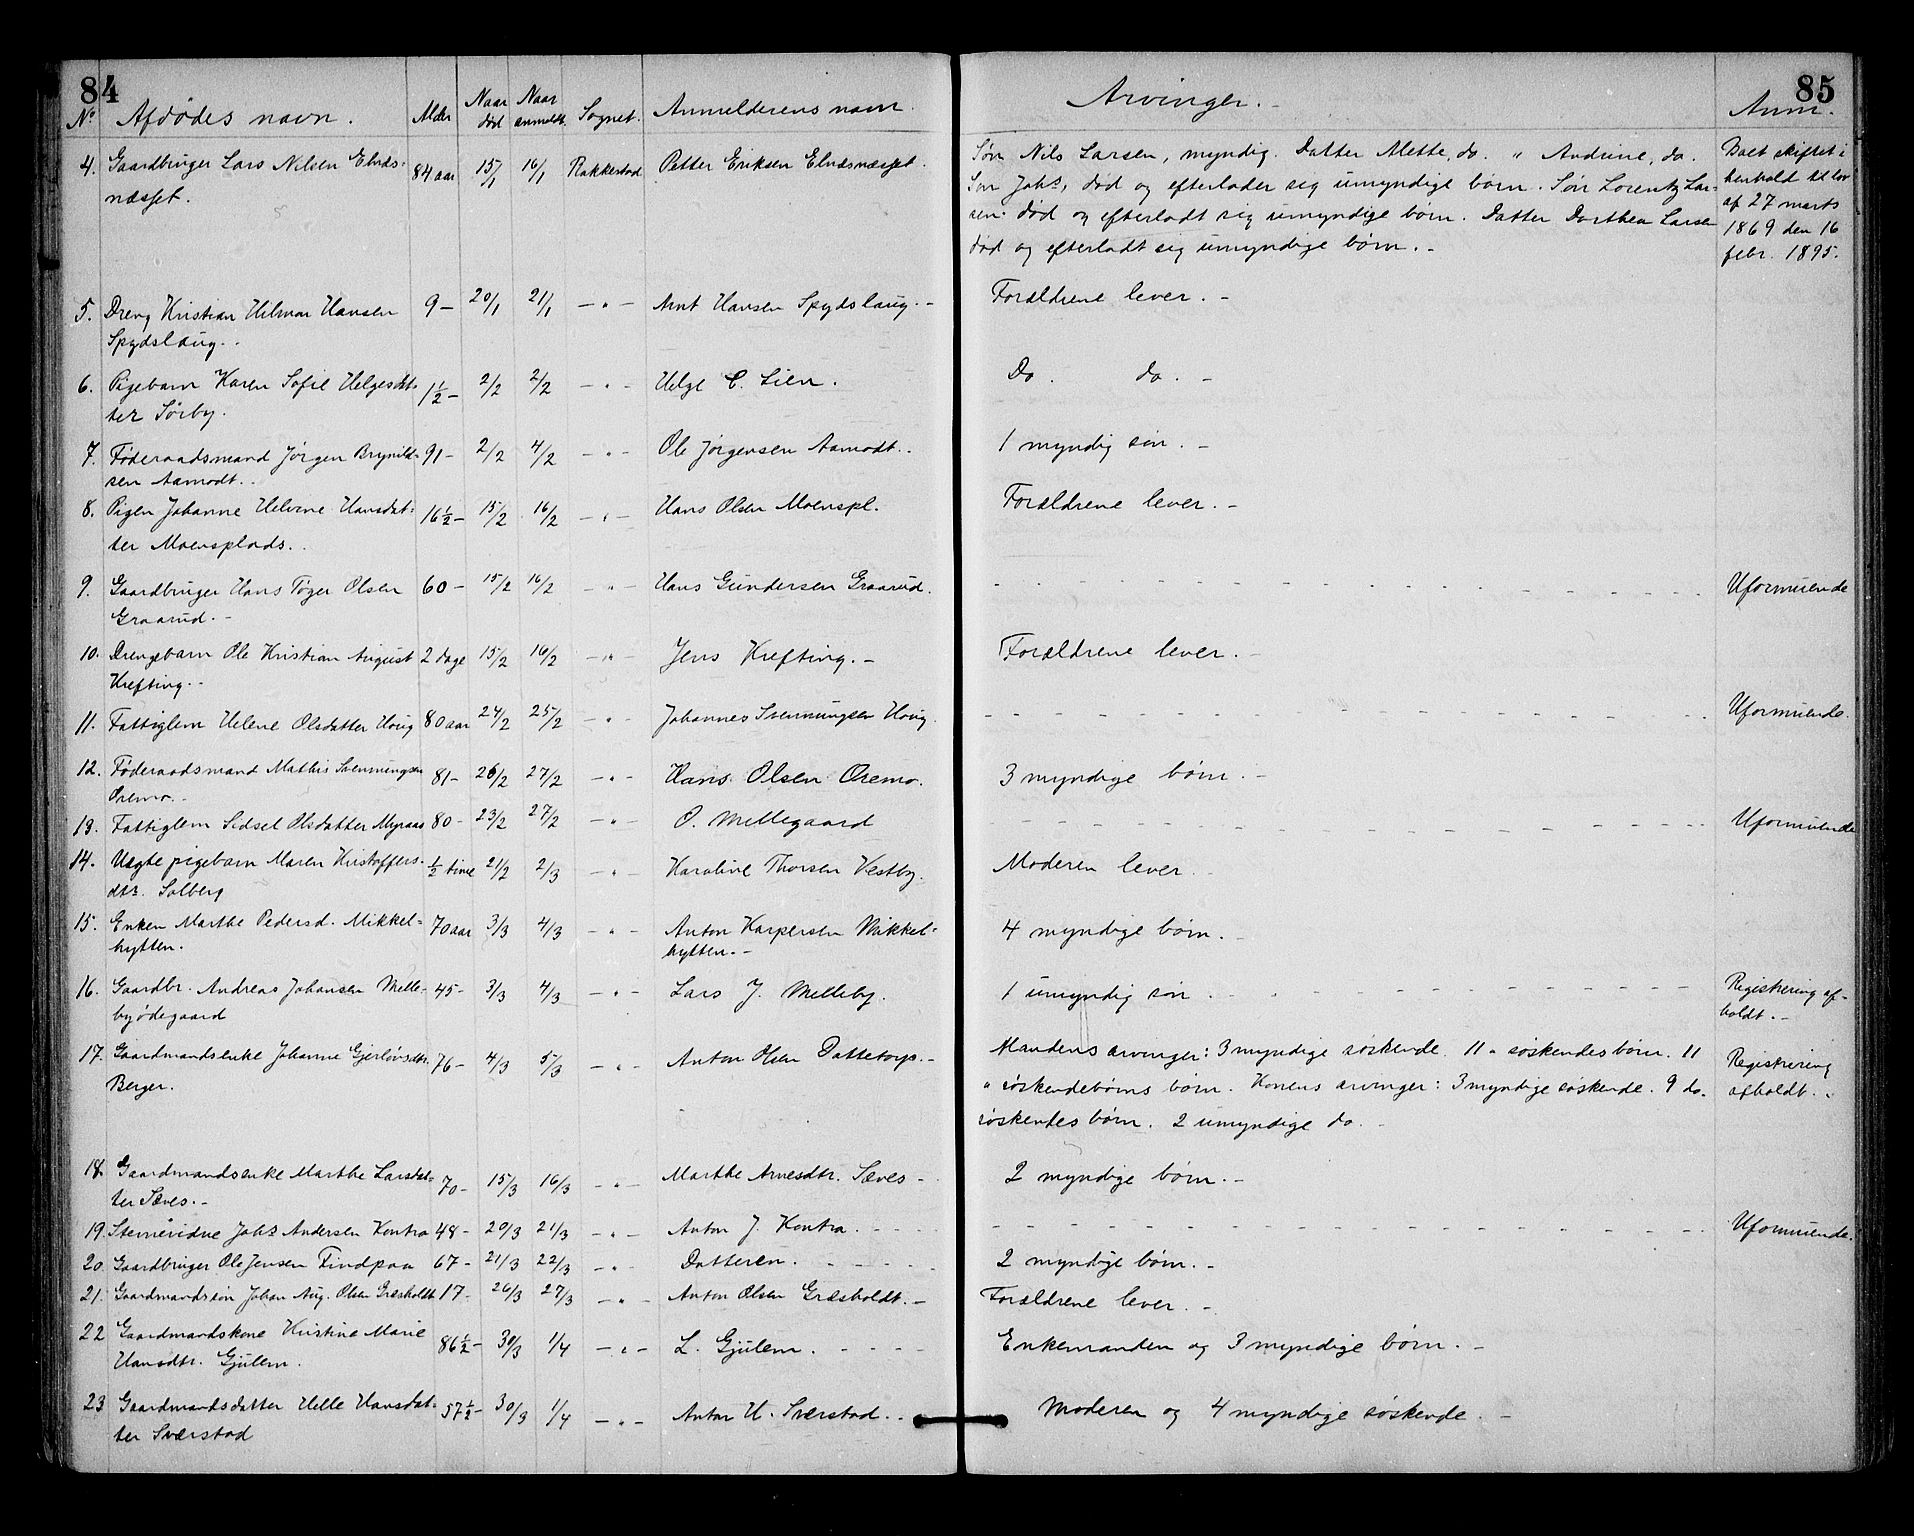 84
85
No Afdødes navn. Alder Naar død Naar anmeldt. Sognet. Anmelderens navn. Arvinger. Anm.
4. Gaardbruger Lars Nilsen Elvds- 84 aar 15/1 16/1 Rakkestad Petter Eriksen Elvdsnæsset. Søn Nils Larsen, myndig. Datter Alette, do. " Andrine, do. Boet skiftet i
næsset. Søn Johs, død og efterlader sig umyndige børn. Søn Lorentz Lar- henhold til lov
sen. død og efterladt sig umyndige børn. Datter Dorthea Larsen af 27 marts
død og efterladt sig umyndige børn. - 1869 den 16
febr. 1895.
5. Dreng Kristian Hilmar Hansen 9 - 20/1 21/1 - " - Arnt Hansen Spydslaug. - Forældrene lever. -
Spydslaug. -
6. Pigebarn Karen Sofie Helgesdat- 1½ - 2/2 2/2 - " - Helge C. Lien. Do. do. -
ter Sørby.
7. Føderaadsmand Jørgen Brynild- 91 - 2/2 4/2 - " - Ole Jørgensen Aamodt. - 1 myndig søn. -
sen Aamodt. -
8. Pigen Johanne Helvine Hansdat- 16½ - 15/2 16/2 - " - Hans Olsen Moenspl. Forældrene lever. -
ter Moensplads. -
9. Gaardbruger Hans Tøger Olsen 60 - 15/2 16/2 - " - Hans Gundersen Graarud. - - - - Uformuende
Graarud. -
10. Drengebarn Ole Kristian August 2 dage 15/2 16/2 - " - Jens Krefting. - Forældrene lever. -
Krefting. -
11. Fattiglem Helene Olsdatter Hovig 80 aar 24/2 25/2 - " - Johannes Svenningsen Hovig. - - - - Uformuende.
12. Føderaadsmand Mathis Svenningsen 81 - 26/2 27/2 - " - Hans Olsen Oremo. 3 myndige børn. -
Oremo. -
13. Fattiglem Sidsel Olsdatter Myraas 80 - 23/2 27/2 - " - O. Mellegaard - - - - Uformuende
14. Uægte pigebarn Maren Kristoffers- ½ time 21/2 2/3 - " - Karoline Thorsen Vestby. Moderen lever. -
dtr. Solberg
15. Enken Marthe Pedersd. Mikkel- 70 aar 3/3 4/3 - " - Anton Kaspersen Mikkel- 4 myndige børn. -
hytten. hytten. -
16. Gaardbr. Andreas Johansen Melle- 45 - 3/3 4/3 - " - Lars J. Melleby. 1 umyndig søn. - - - - Registrering af-
byødegaard holdt. -
17. Gaardmandsenke Johanne Gjerløvsdtr. 76 - 4/3 5/3 - " - Anton Olsen Dattetorp. - Mandens arvinger: 3 myndige søskende. 11 " søskendes børn. 11 Registrering
Berger. " søskendebørns børn. Konens arvinger: 3 myndige søskende. 9 do. afholdt. -
søskendes børn. 2 umyndige do. -
18. Gaardmandsenke Marthe Larsdat- 70 - 15/3 16/3 - " - Marthe Arnesdtr. Sæves - 2 myndige børn. -
ter Sæves. -
19. Johs Andersen Kontra 48 - 20/3 21/3 - " - Anton J. Kontra. - - - - Uformuende.
20. Gaardbruger Ole Jensen Findpaa 67 - 21/3 22/3 - " - Datteren. - - - - 2 myndige børn. -
21. Gaardmandssøn Johan Aug. Olsen Græsholdt 17 - 26/3 27/3 - " - Anton Olsen Græsholdt. - Forældrene lever. -
22 Gaardmandskone Kristine Marie 86½ - 30/3 1/4 - " - L. Gjulem. - - - - Enkemanden og 3 myndige børn. -
Hansdtr. Gjulem.
23 Gaardmandsdatter Helle Hansdat- 57½ - 30/3 1/4 - " - Anton H. Sværstad. - Moderen og 4 myndige søskende. -
ter Sværstad